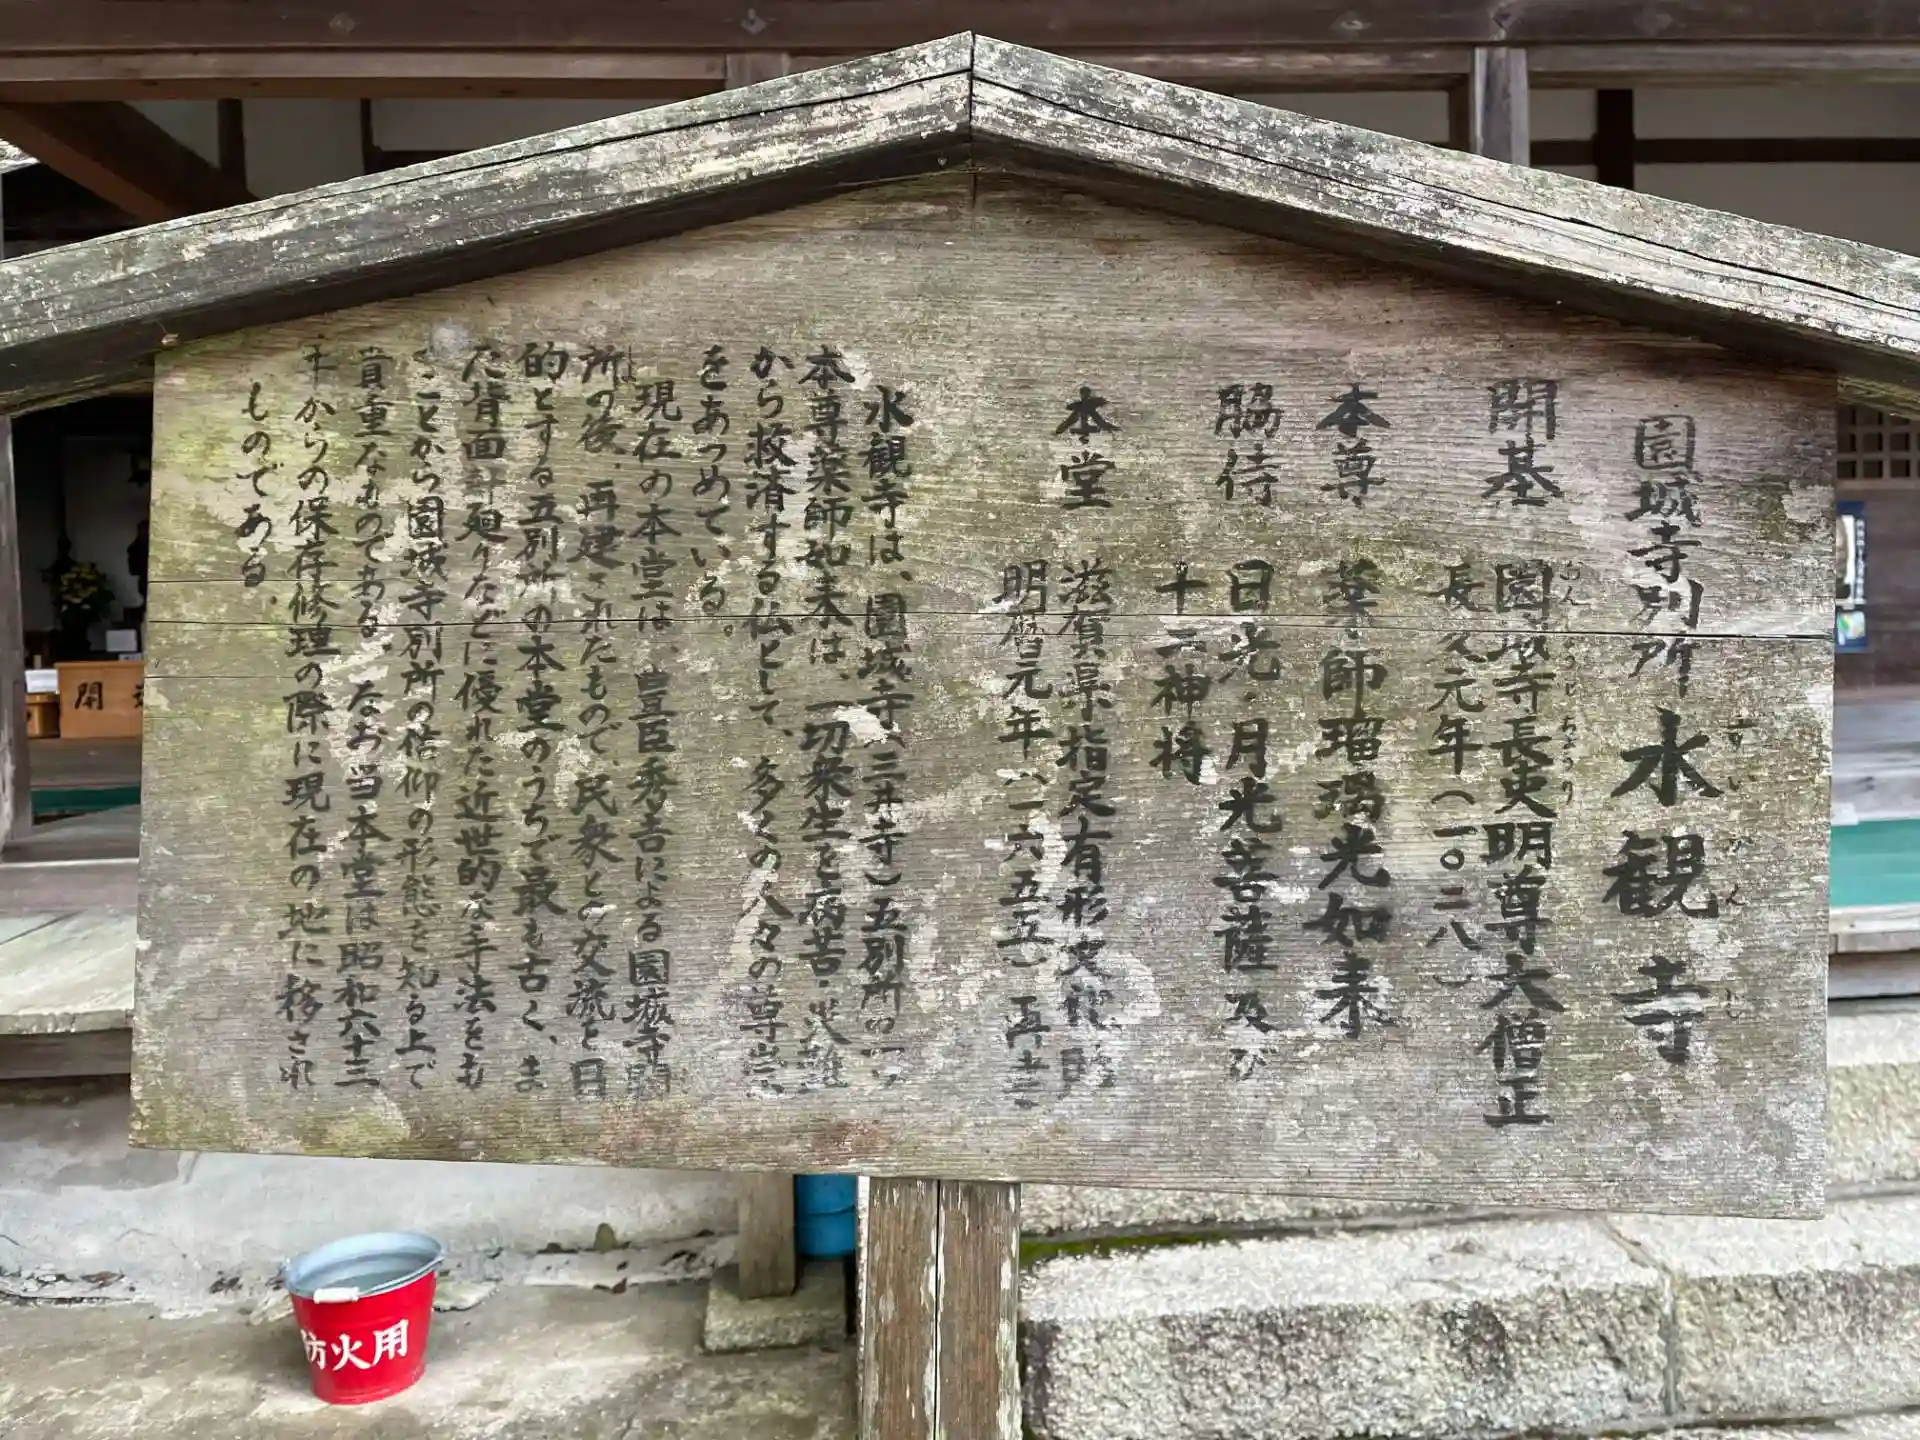 園城寺別所 水観寺
すい かん じ
開基 園城寺長吏明尊大僧正
おんじょうじ ちょうり
長久元年(一〇二八)
本尊 薬師瑠璃光如来
脇侍 日光・月光菩薩及び
十二神将
本堂 滋賀県指定有形文化財
明暦元年(一六五五)再建
水観寺は、園城寺(三井寺)五別所の一つ
本尊薬師如来は、一切衆生を病苦・災難
から救済する仏として、多くの人々の尊崇
をあつめている。
現在の本堂は、豊臣秀吉による園城寺闕
所の後、再建されたもので、民衆との交流を目
しょ
的とする五別所の本堂のうちで最も古く、ま
た背面廻りなどに優れた近世的な手法をも
つことから園城寺別所の信仰の形態を知る上で
貴重なものである。なお当本堂は昭和六十三
年からの保存修理の際に現在の地に移され
ものである。
防火用
開